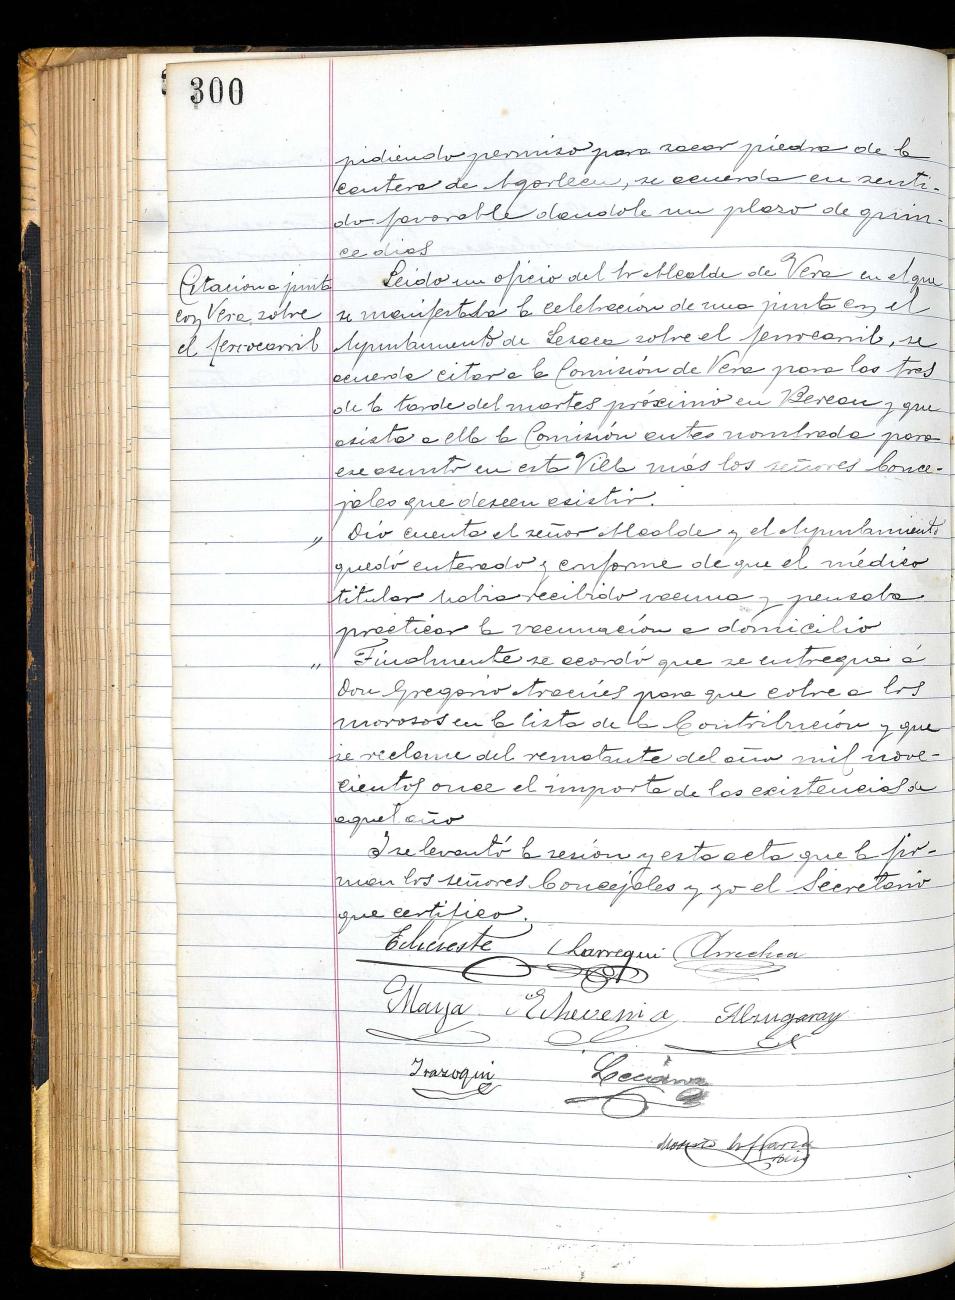 300
pidiendo permiso para sacar piedra de la
cantera de Agarleen, se acuerda en senti-
do favorable dandole un plazo de quin-
ce dias
Citación a junta
con Vera sobre
el ferrocarril
Leido un oficio del Sr Alcalde de Vera en el que
se manifestaba la celebración de una junta con el
Ayuntamiento de Lesaca sobre el ferrocarril, se
acuerda citar a la Comisión de Vera para las tres
de la tarde del martes próximo en Berean y que
asista a ella la Comisión antes nombrada para
ese asunto en esta Villa más los señores Conce-
jales que deseen asistir.
" Dió cuenta el señor Alcalde y el Ayuntamiento
quedó enterado y conforme de que el médico
titular habia recibido vacuna y pensaba
practicar la vacunación a domicilio
" Finalmente se acordó que se entregue á
Don Gregorio para que cobre a los
morosos en la lista de la Contribución y que
se reclame del rematante del año mil nove-
cientos once el importe de las existencias de
aquel año
I se levantó la sesión y esta acta que la fir-
man los señores Concejales y yo el Secretario
que certifico.
Echeveste Larregui Arrechea
Maya Echevenia Alzugaray
Irazoqui Lecuona